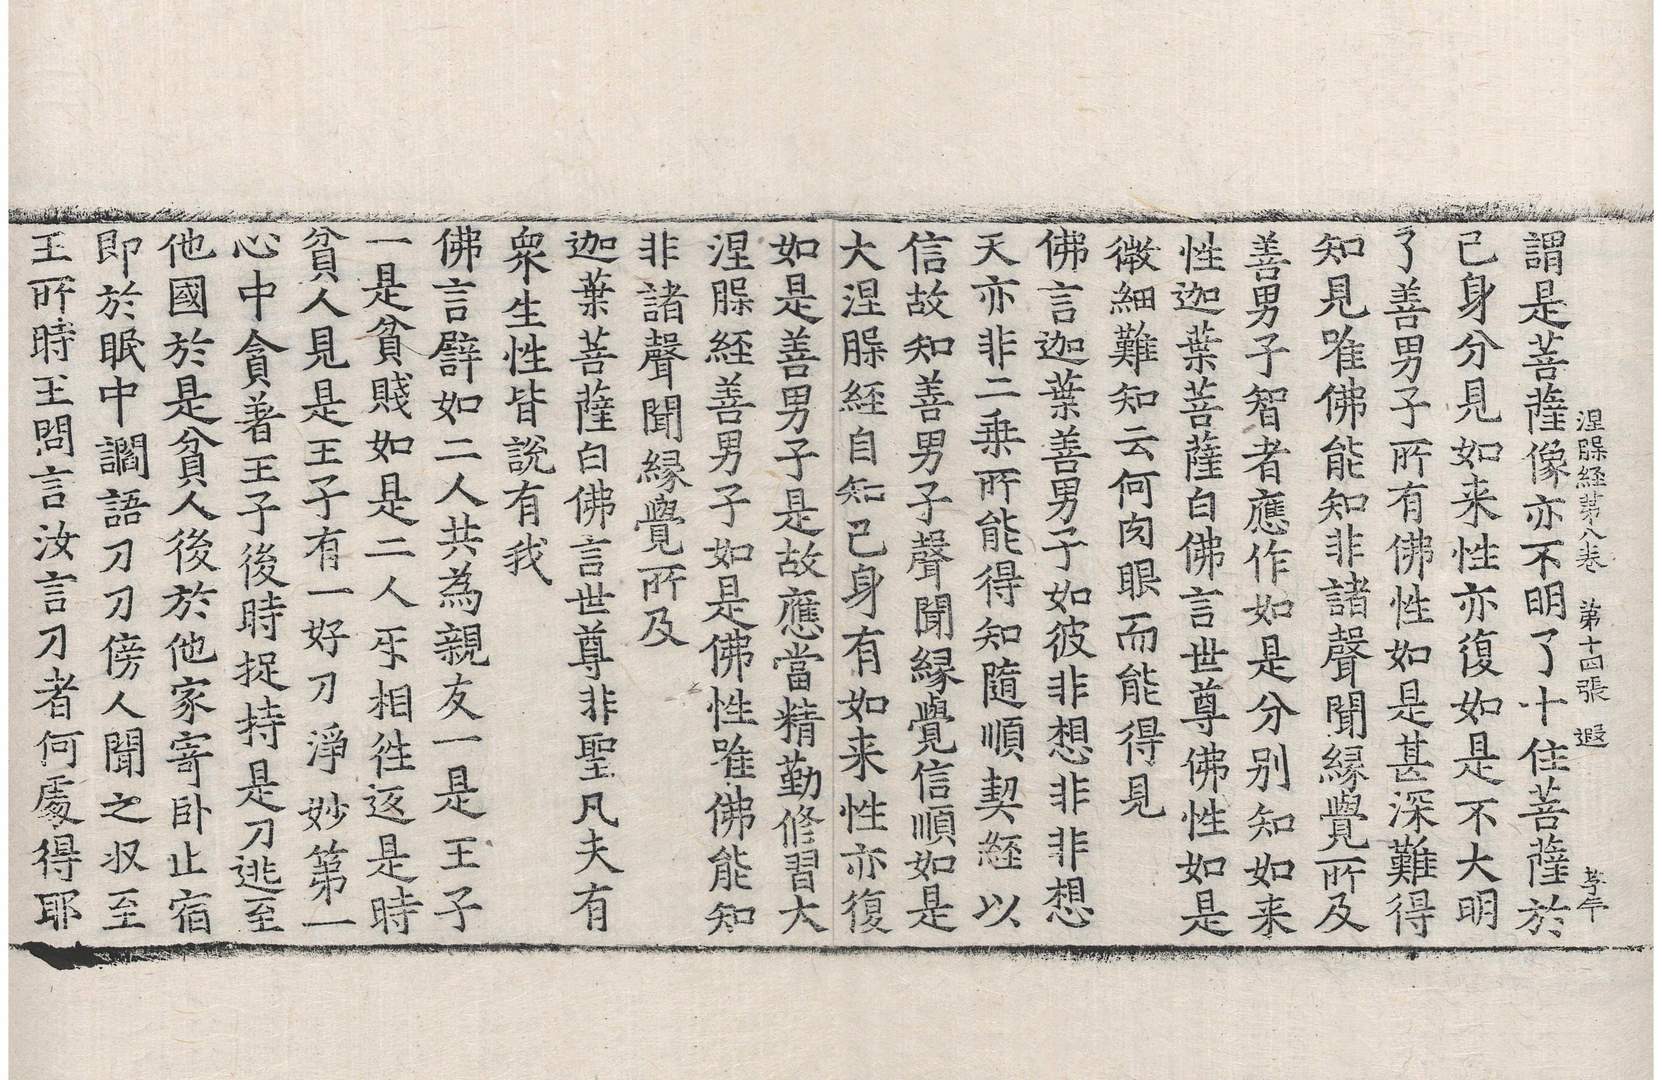 涅槃經第八卷 第十四張 遐
謂是菩薩像亦不明了十住菩薩於
己身分見如来性亦復如是不大明
了善男子所有佛性如是甚深難得
知見唯佛能知非諸聲聞縁覺所及
善男子智者應作如是分別知如来
性迦葉菩薩白佛言世尊佛性如是
微細難知云何肉眼而能得見
佛言迦葉善男子如彼非想非非想
天亦非二乗所能得知隨順契經以
信故知善男子聲聞縁覺信順如是
大涅槃經自知己身有如来性亦復
如是善男子是故應當精勤修習大
涅槃經善男子如是佛性唯佛能知
非諸聲聞縁覺所及
迦葉菩薩白佛言世尊非聖凡夫有
衆生性皆說有我
佛言譬如二人共為親友一是王子
一是貧賤如是二人互相往返是時
貧人見是王子有一好刀淨妙第一
心中貪著王子後時捉持是刀逃至
他國於是貧人後於他家寄卧止宿
即於眠中讇語刀刀傍人聞之収至
王所時王問言汝言刀者何處得耶